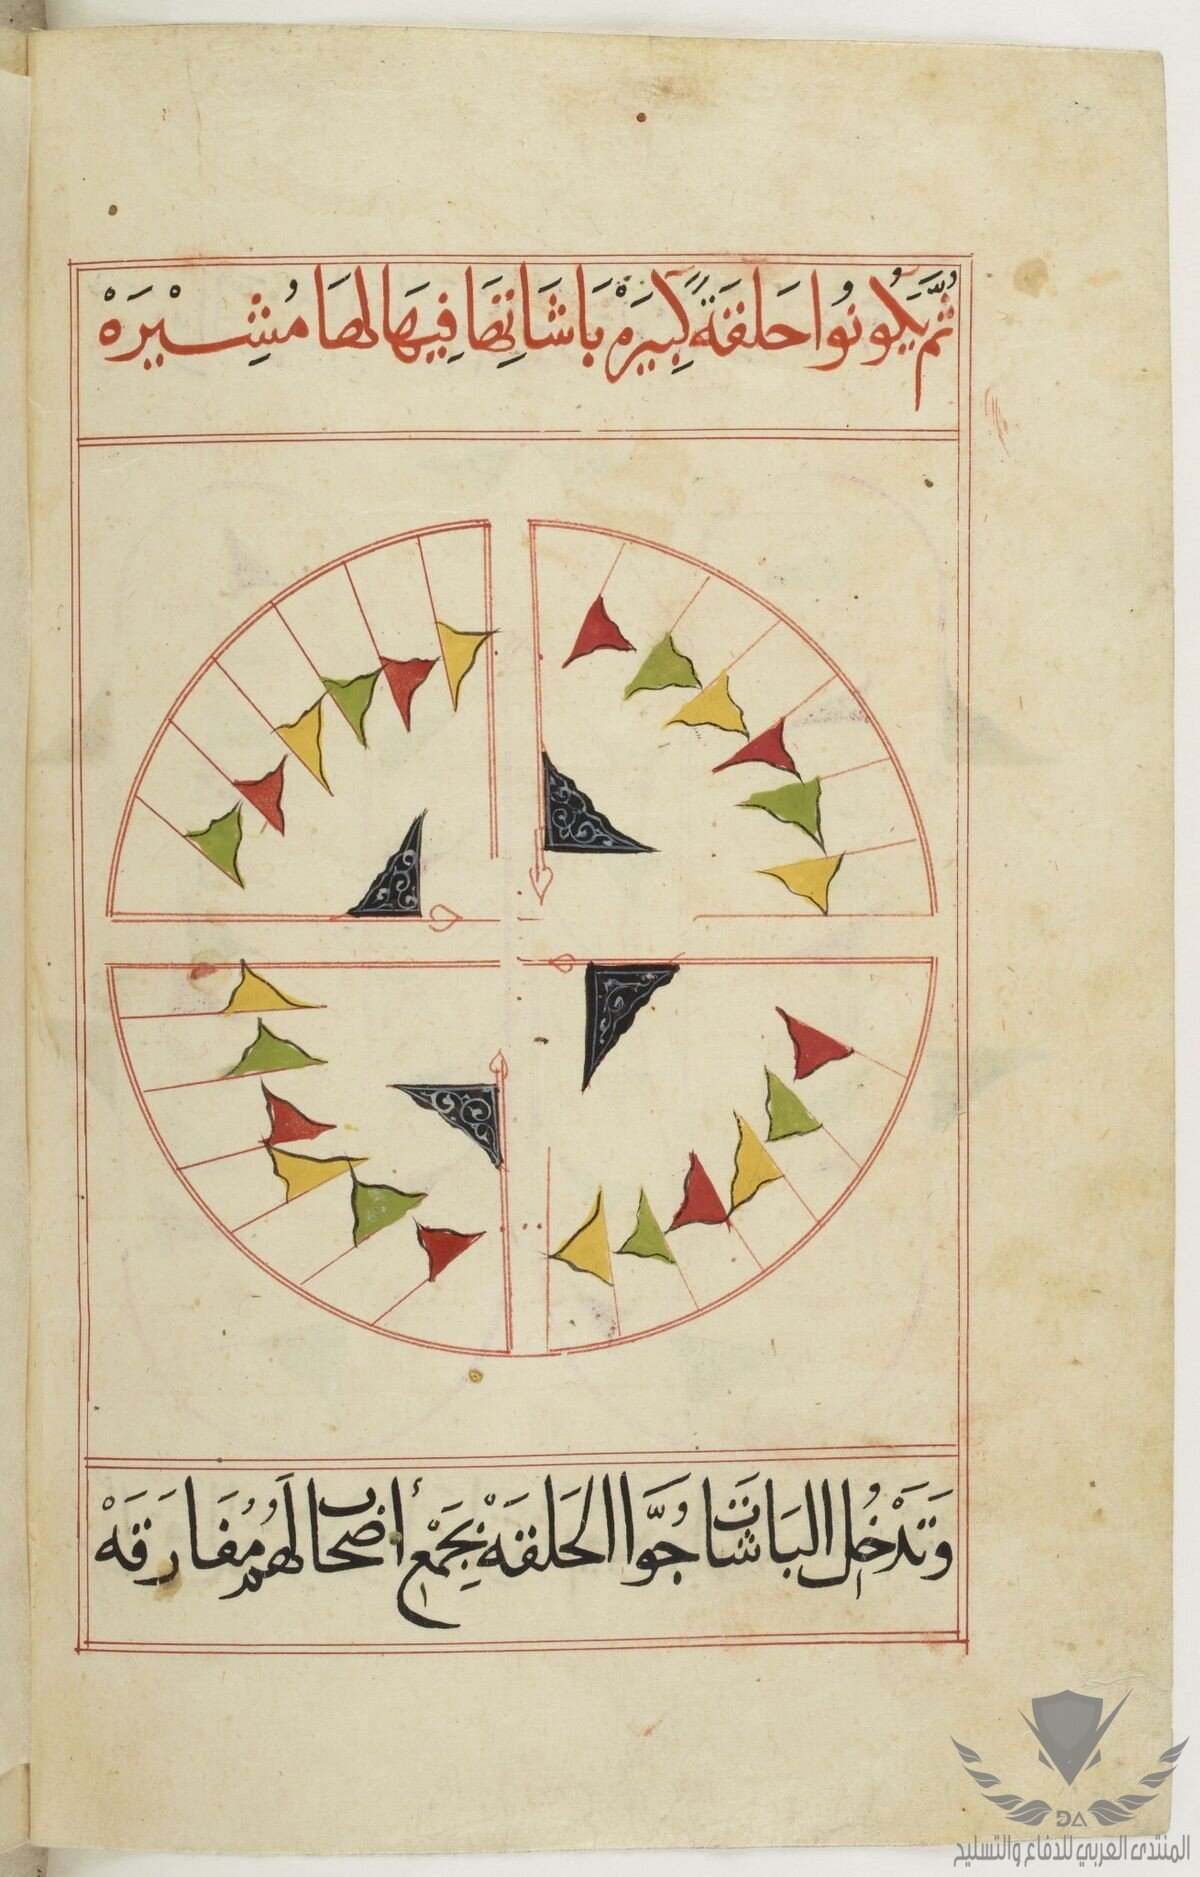 ثُمَّ يَكُونُوا حَلَقَةً كَبِيرَةْ بَاشَاتِهَا فِيهَا لهَا مُشِيْرَهْ
وَتَدْخُلُ البَاشَاتُ جُوَّا الحَلَقَهْ بِجَمْعِ أصْحَابٍ لَهُمْ مُفَارَقَهْ
DA
المنتدى العربي للدفاع والتسليح